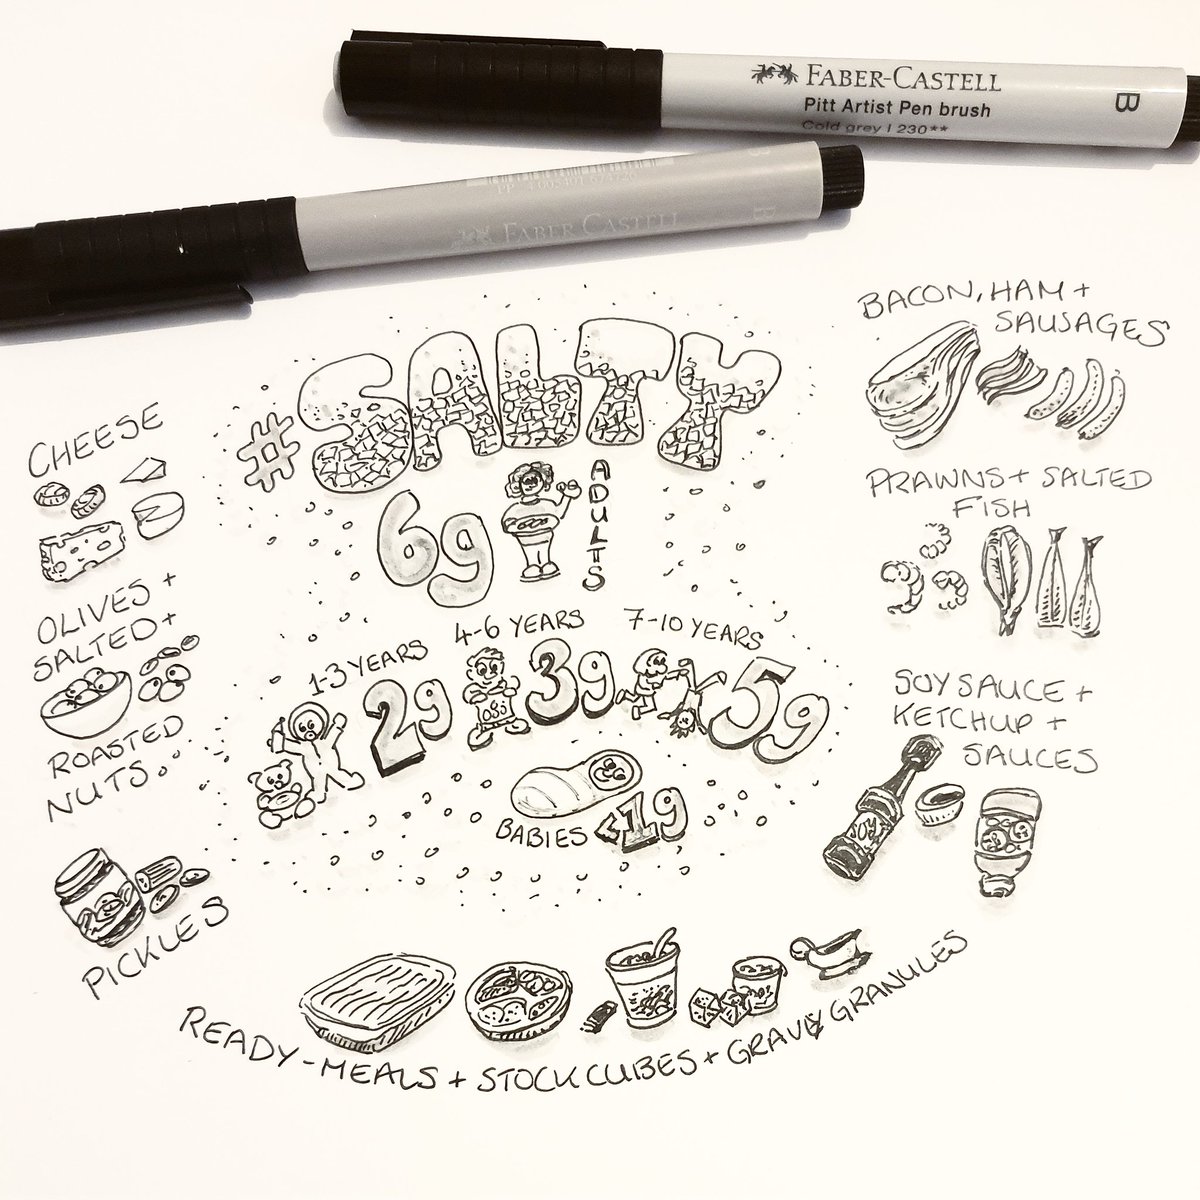 FABER-CASTELL
Pitt Artist Pen brush
Cold grey I 230**
B
FABER CASTELL
B
#SALTY
6g
ADULTS
1-3 YEARS
2g
4-6 YEARS
3g
7-10 YEARS
5g
BABIES <1g
CHEESE
OLIVES +
SALTED +
ROASTED
NUTS
PICKLES
BACON, HAM +
SAUSAGES
PRAWNS + SALTED
FISH
SOY SAUCE +
KETCHUP +
SAUCES
SOY
READY-MEALS + STOCK CUBES + GRAVY GRANULES